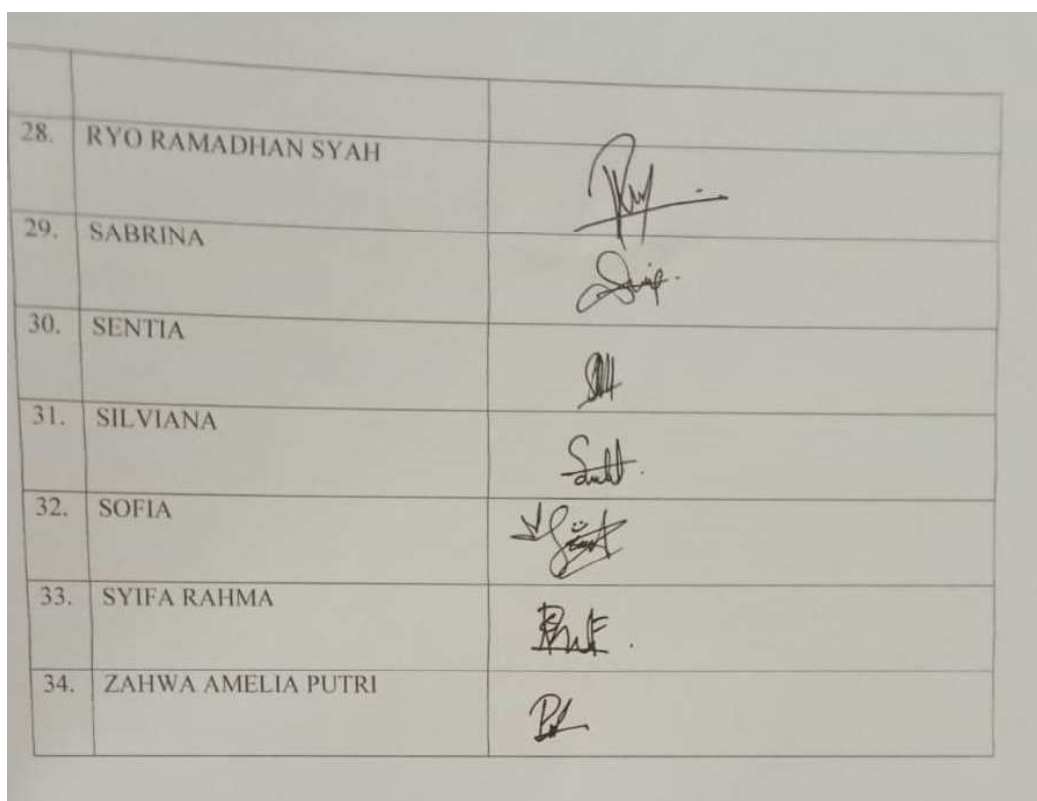 28. RYO RAMADHAN SYAH
29. SABRINA
30. SENTIA
31. SILVIANA
32. SOFIA
33. SYIFA RAHMA
34. ZAHWA AMELIA PUTRI